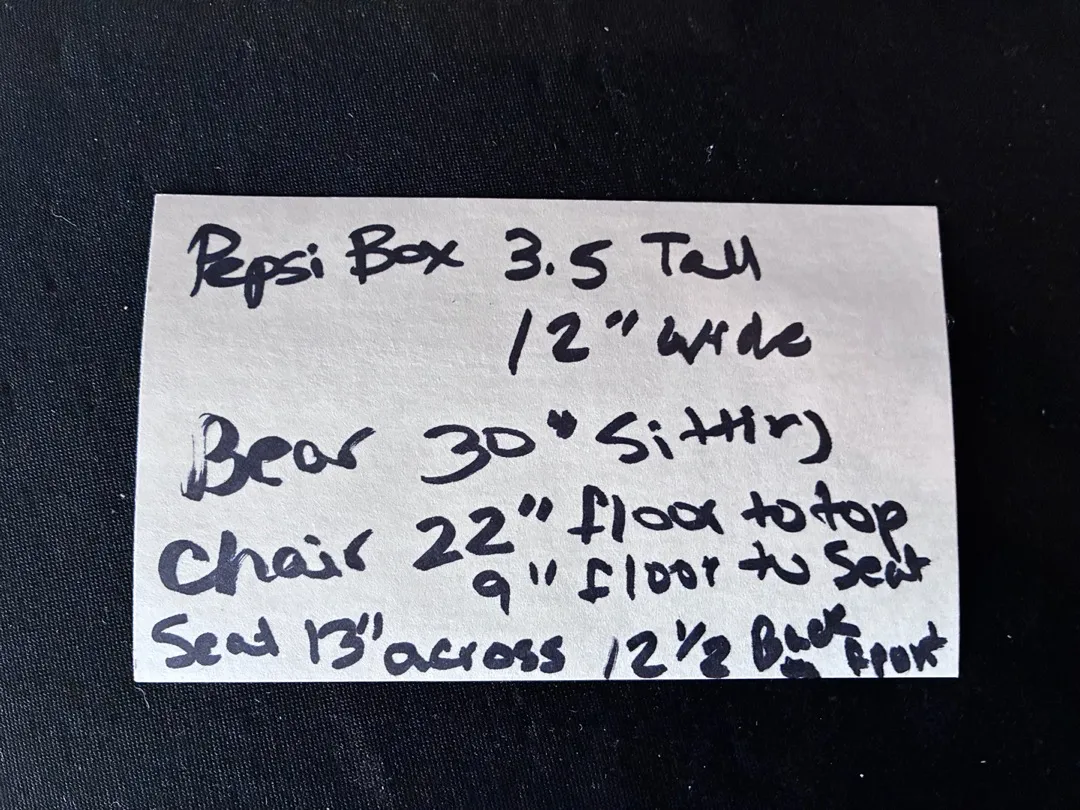 Pepsi Box 3.5 Tall
12" wide
Bear 30" Sitting
Chair 22" floor to top
9" floor to Seat
Seat 13" across 12 1/2 Back to Front